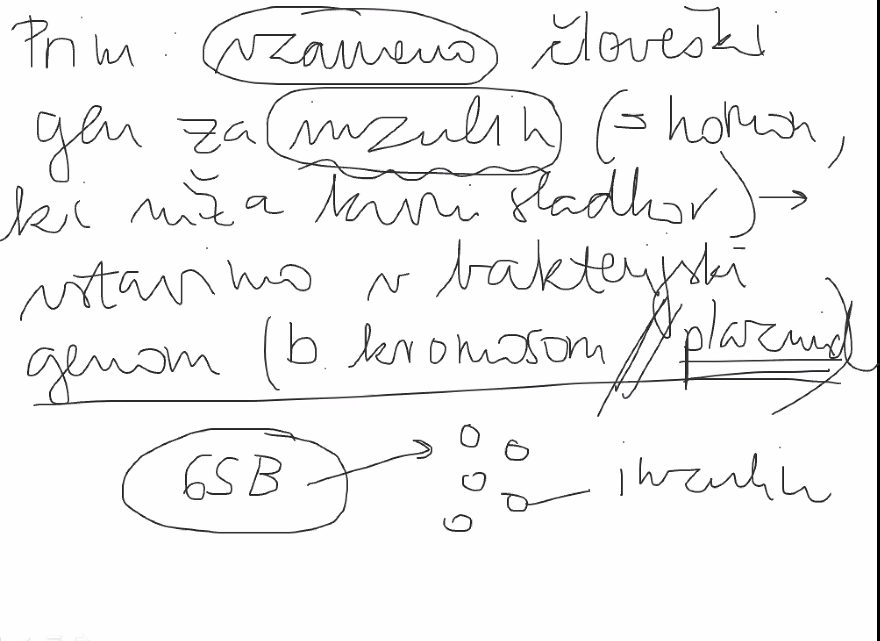 Prim vzamemo človeški
gen za inzulin (= hormon,
ki niža krvni sladkor) →
vstavimo v bakterijski
genom (b kromosom // plazmid)
GSB → inzulin